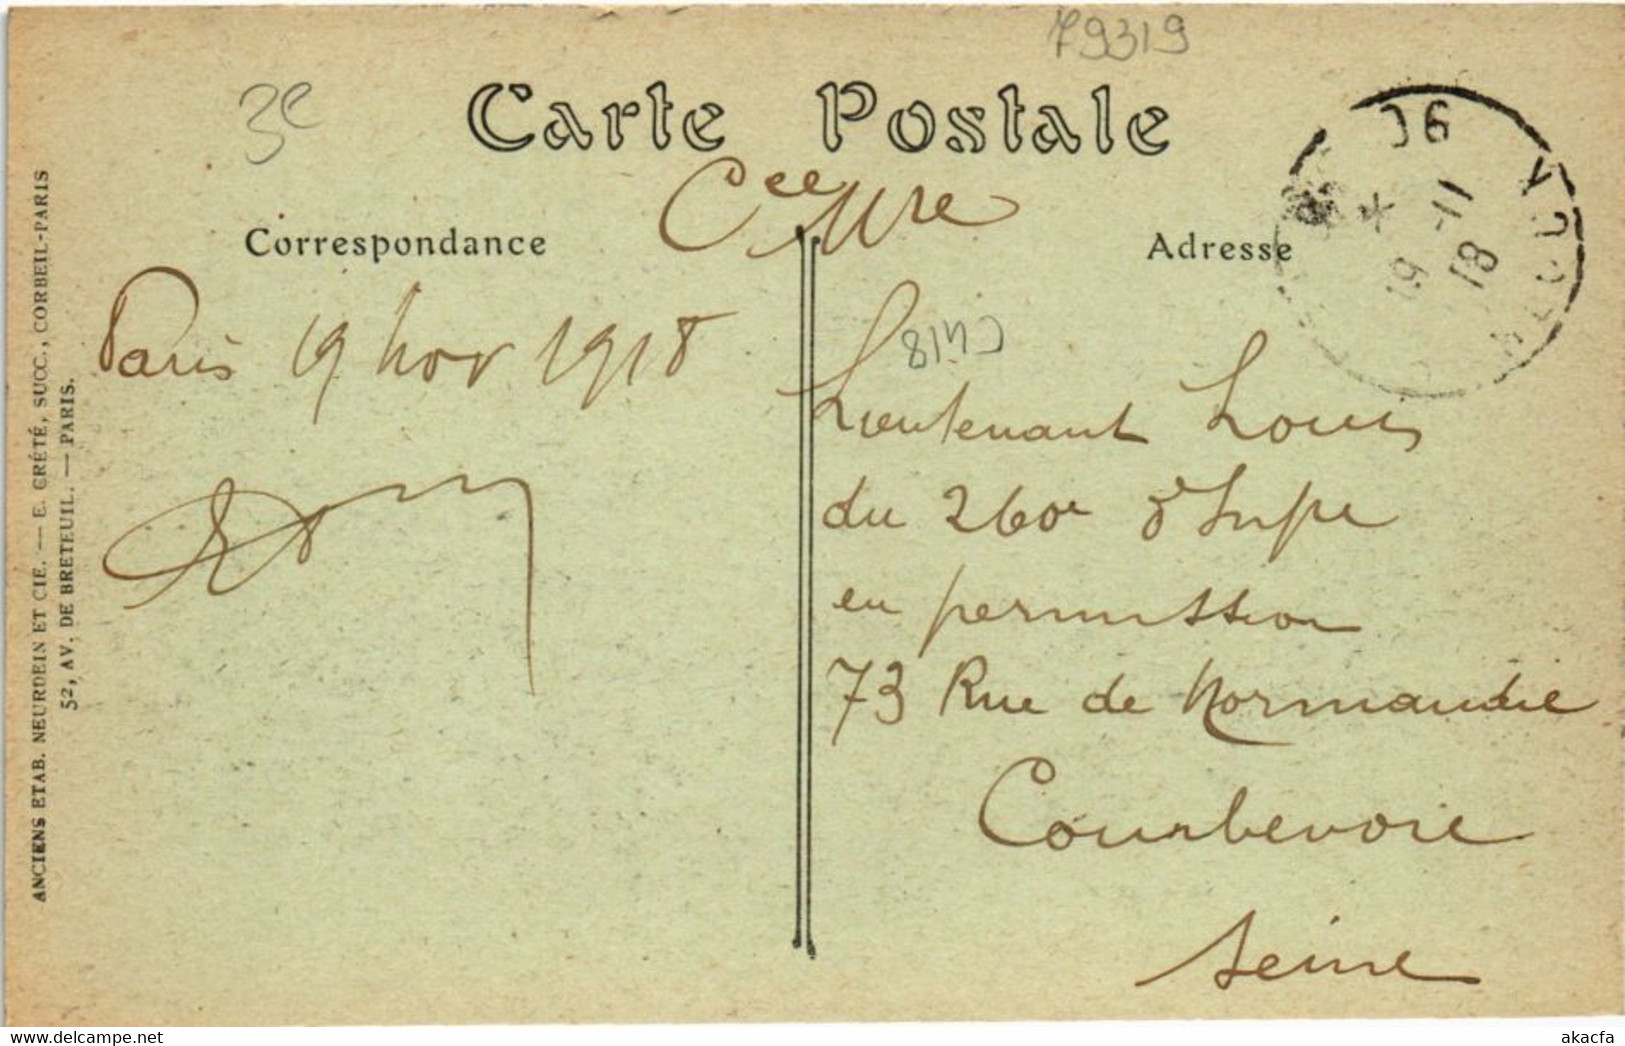 79319
3e
Carte Postale
Cce Mre
Correspondance
Adresse
19 -11
18
Paris 19 nov 1918
Lieutenant Louis
du 260e d'Infie
en permission
73 Rue de Normandie
Courbevoie
Seine
ANCIENS ETAB. NEURDEIN ET CIE. — E. CRÉTÉ, SUCC., CORBEIL-PARIS
52, AV. DE BRETEUIL. — PARIS.
akacfa